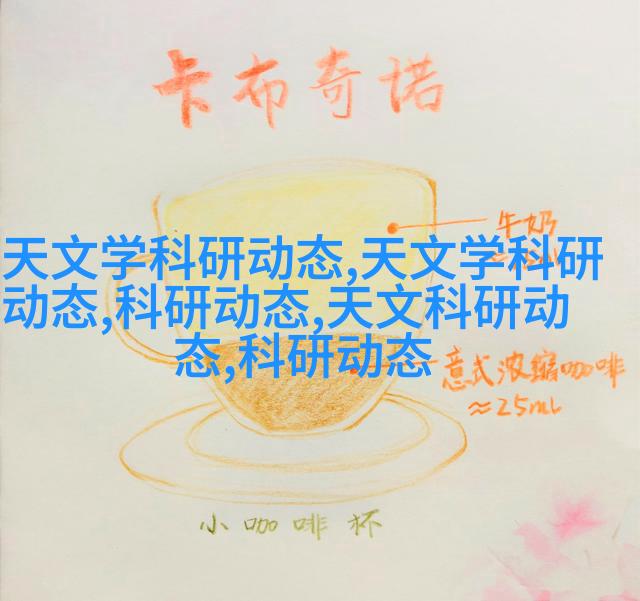 卡布奇诺
牛奶
天文学科研动态,天文学科研
动态,科研动态,天文科研动
态,科研动态
意式浓缩咖啡
≈25ml
小咖啡杯